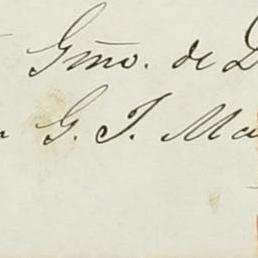 Gmo. de D
G. T. Ma